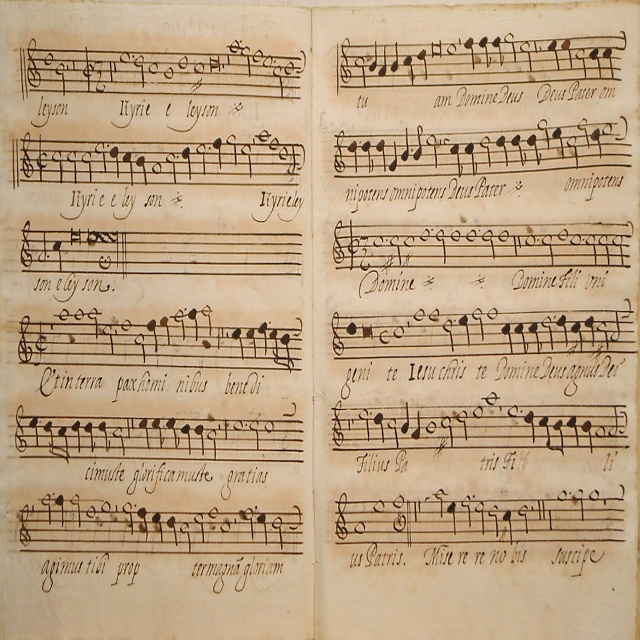 leyson Kyrie e leyson
Kyrie e ley son Kyrie ley
son e ley son.
Et in terra pax homi nibus benedi
cimuste glorificamuste gratias
agimus tibi prop ter magnā gloriam
tu am Domine Deus Deus Pater om
nipotens omnipotens Deus Pater omnipotens
Domine Domine Fili vni
geni te Iesu christe te Domine Deus agnus Dei
Filius Pa tris Fi li
us Patris. Mise re re no bis suscipe